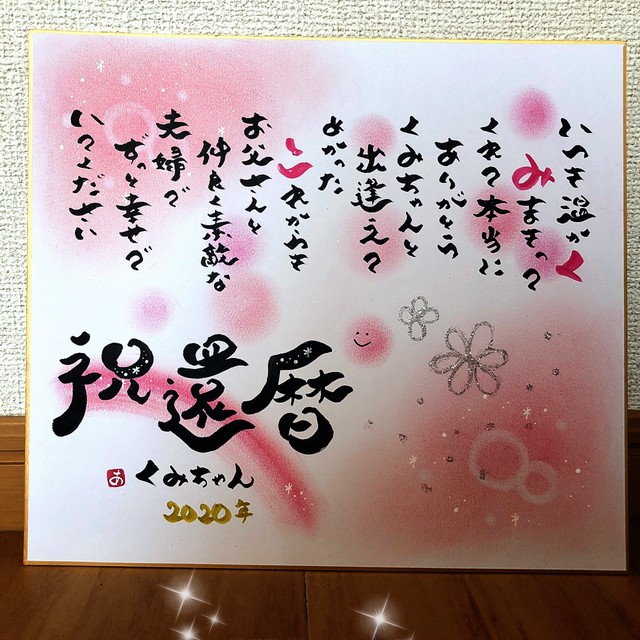 いつも温かく
みまもって
くれて本当に
ありがとう
くみちゃんと
出逢えて
よかった
これからも
お父さんと
仲良く素敵な
夫婦で
ずっと幸せで
いてください
祝還暦
くみちゃん
2020年